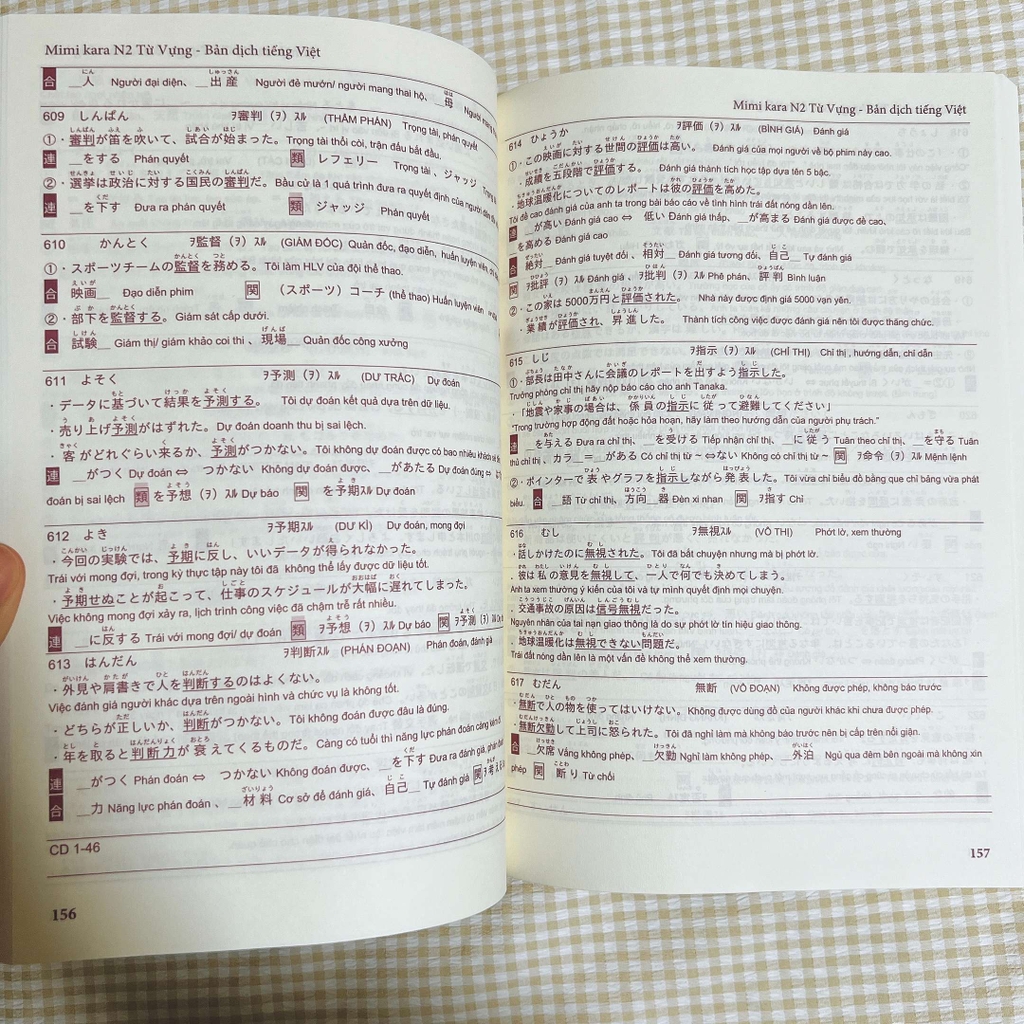 Mimi kara N2 Từ Vựng - Bản dịch tiếng Việt
合 __人 Người đại diện、 __出産 Người đẻ mướn/ người mang thai hộ、 __母 Người mang
609 しんぱん ヲ審判（ヲ）ｽﾙ (THẨM PHÁN) Trọng tài, phán quyết
①・審判が笛を吹いて、試合が始まった。Trọng tài thổi còi, trận đấu bắt đầu.
連 __をする Phán quyết 類 レフェリー Trọng tài 、ジャッジ
②・選挙は政治に対する国民の審判だ。Bầu cử là 1 quá trình đưa ra quyết định của người dân
連 __を下す Đưa ra phán quyết 類 ジャッジ Phán quyết
610 かんとく ヲ監督（ヲ）ｽﾙ (GIÁM ĐỐC) Quản đốc, đạo diễn, huấn luyện viên,
①・スポーツチームの監督を務める。Tôi làm HLV của đội thể thao.
合 映画__ Đạo diễn phim 関 （スポーツ）コーチ (thể thao) Huấn luyện viên
②・部下を監督する。Giám sát cấp dưới.
合 試験__ Giám thị/ giám khảo coi thi 、現場__ Quản đốc công xưởng
611 よそく ヲ予測（ヲ）ｽﾙ (DƯ TRẮC) Dự đoán
・データに基づいて結果を予測する。 Tôi dự đoán kết quả dựa trên dữ liệu.
・売り上げ予測がはずれた。Dự đoán doanh thu bị sai lệch.
・客がどれぐらい来るか、予測がつかない。Tôi không dự đoán được có bao nhiêu khách sẽ
連 __がつく Dự đoán ⇔ つかない Không dự đoán được、__があたる Dự đoán đúng ⇔
đoán bị sai lệch 類 を予想（ヲ）ｽﾙ Dự báo 関 を予期ｽﾙ Dự đoán
612 よき ヲ予期ｽﾙ (DƯ KÌ) Dự đoán, mong đợi
・今回の実験では、予期に反し、いいデータが得られなかった。
Trái với mong đợi, trong kỳ thực tập này tôi đã không thể lấy được dữ liệu tốt.
・予期せぬことが起こって、仕事のスケジュールが大幅に遅れてしまった。
Việc không mong đợi xảy ra, lịch trình công việc đã chậm trễ rất nhiều.
連 __に反する Trái với mong đợi/ dự đoán 類 ヲ予想（ヲ）ｽﾙ Dự báo 関 ヲ予測（ヲ）ｽﾙ
613 はんだん ヲ判断ｽﾙ (PHÁN ĐOẠN) Phán đoán, đánh giá
・外見や肩書きで人を判断するのはよくない。
Việc đánh giá người khác dựa trên ngoài hình và chức vụ là không tốt.
・どちらが正しいか、判断がつかない。Tôi không đoán được đâu là đúng.
・年を取ると判断力が衰えてくるものだ。Càng có tuổi thì năng lực phán đoán càng
連 __がつく Phán đoán ⇔ つかない Không đoán được、__を下す Đưa ra đánh giá,
合 __力 Năng lực phán đoán 、__材料 Cơ sở để đánh giá、自己__ Tự đánh giá 関
CD 1-46
156
Mimi kara N2 Từ Vựng - Bản dịch tiếng Việt
614 ひょうか ヲ評価（ヲ）ｽﾙ (BÌNH GIÁ) Đánh giá
①・この映画に対する世間の評価は高い。 Đánh giá của mọi người về bộ phim này cao.
・成績を五段階で評価する。 Đánh giá thành tích học tập dựa tên 5 bậc.
・地球温暖化についてのレポートは彼の評価を高めた。
Tôi đề cao đánh giá của anh ta trong bài báo cáo về tình hình trái đất nóng dần lên.
連 __が高い Đánh giá cao ⇔ 低い Đánh giá thấp、__が高まる Đánh giá được đề cao、
を高める Đánh giá cao
合 絶対__ Đánh giá tuyệt đối 、相対__ Đánh giá tương đối、自己__ Tự đánh giá
関 ヲ批評（ヲ）ｽﾙ Đánh giá 、ヲ批判（ヲ）ｽﾙ Phê phán、評判 Bình luận
②・この家は 5000万円と評価された。 Nhà này được định giá 5000 vạn yên.
・業績が評価され、昇進した。 Thành tích công việc được đánh giá nên tôi được thăng chức.
615 しじ ヲ指示（ヲ）ｽﾙ (CHỈ THỊ) Chỉ thị , hướng dẫn, chỉ dẫn
①・部長は田中さんに会議のレポートを出すよう指示した。
Trưởng phòng chỉ thị hãy nộp báo cáo cho anh Tanaka.
・「地震や家事の場合は、係員の指示に従って避難してください」
"Trong trường hợp động đất hoặc hỏa hoạn, hãy làm theo hướng dẫn của người phụ trách."
連 __を与える Đưa ra chỉ thị、__を受ける Tiếp nhận chỉ thị、__に従う Tuân theo chỉ thị、__を守る Tuân
thủ chỉ thị、カラ__＝__がある Có chỉ thị từ ~ ⇔ない Không có chỉ thị từ ~ 関 ヲ命令（ヲ）ｽﾙ Mệnh lệnh
②・ポインターで表やグラフを指示しながら発表した。Tôi vừa chỉ biểu đồ bằng que chỉ bảng vừa phát
biểu. 合 __語 Từ chỉ thị、方向__器 Đèn xi nhan 関 ヲ指す Chỉ
616 むし ヲ無視ｽﾙ (VÔ THỊ) Phớt lờ, xem thường
・話しかけたのに無視された。Tôi đã bắt chuyện nhưng mà bị phớt lờ.
・彼は私の意見を無視して、一人で何でも決めてしまう。
Anh ta xem thường ý kiến của tôi và tự mình quyết định mọi chuyện.
・交通事故の原因は信号無視だった。
Nguyên nhân của tai nạn giao thông là do sự phớt lờ tín hiệu giao thông.
・地球温暖化は無視できない問題だ。
Trái đất nóng dần lên là một vấn đề không thể xem thường.
617 むだん 無断 (VÔ ĐOẠN) Không được phép, không báo trước
・無断で人の物を使ってはいけない。Không được dùng đồ của người khác khi chưa được phép.
・無断欠勤して上司に怒られた。Tôi đã nghỉ làm mà không báo trước nên bị cấp trên nổi giận.
合 __欠席 Vắng không phép、__欠勤 Nghỉ làm không phép、__外泊 Ngủ qua đêm bên ngoài mà không xin
phép 関 断り Từ chối
157